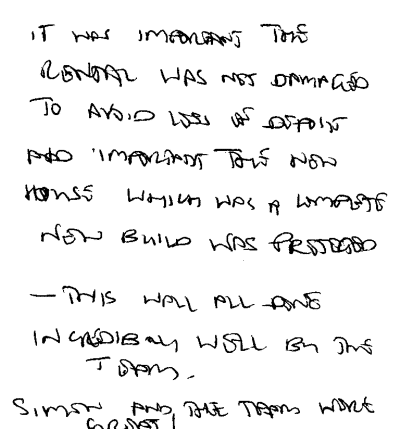 IT WAS IMPORTANT THE
RENTAL WAS NOT DAMAGED
TO AVOID LOSS OF DEPOSIT
AND IMPORTANT THE NEW
HOUSE WHICH WAS A COMPLETE
NEW BUILD WAS PROTECTED
— THIS WAS ALL DONE
INCREDIBLY WELL BY THE
TEAM.
SIMON AND THE TEAM WERE
GREAT!